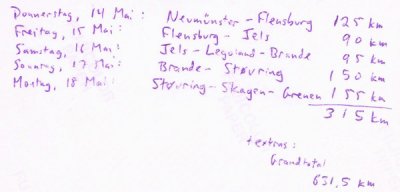 Donnerstag, 14 Mai: Neumünster - Flensburg 125 km
Freitag, 15 Mai: Flensburg - Jels 90 km
Samstag, 16 Mai: Jels - Legoland - Brande 95 km
Sonntag, 17 Mai: Brande - Støvring 150 km
Montag, 18 Mai: Støvring - Skagen - Grenen 155 km
315 km
+extras:
Grandtotal
631,5 km